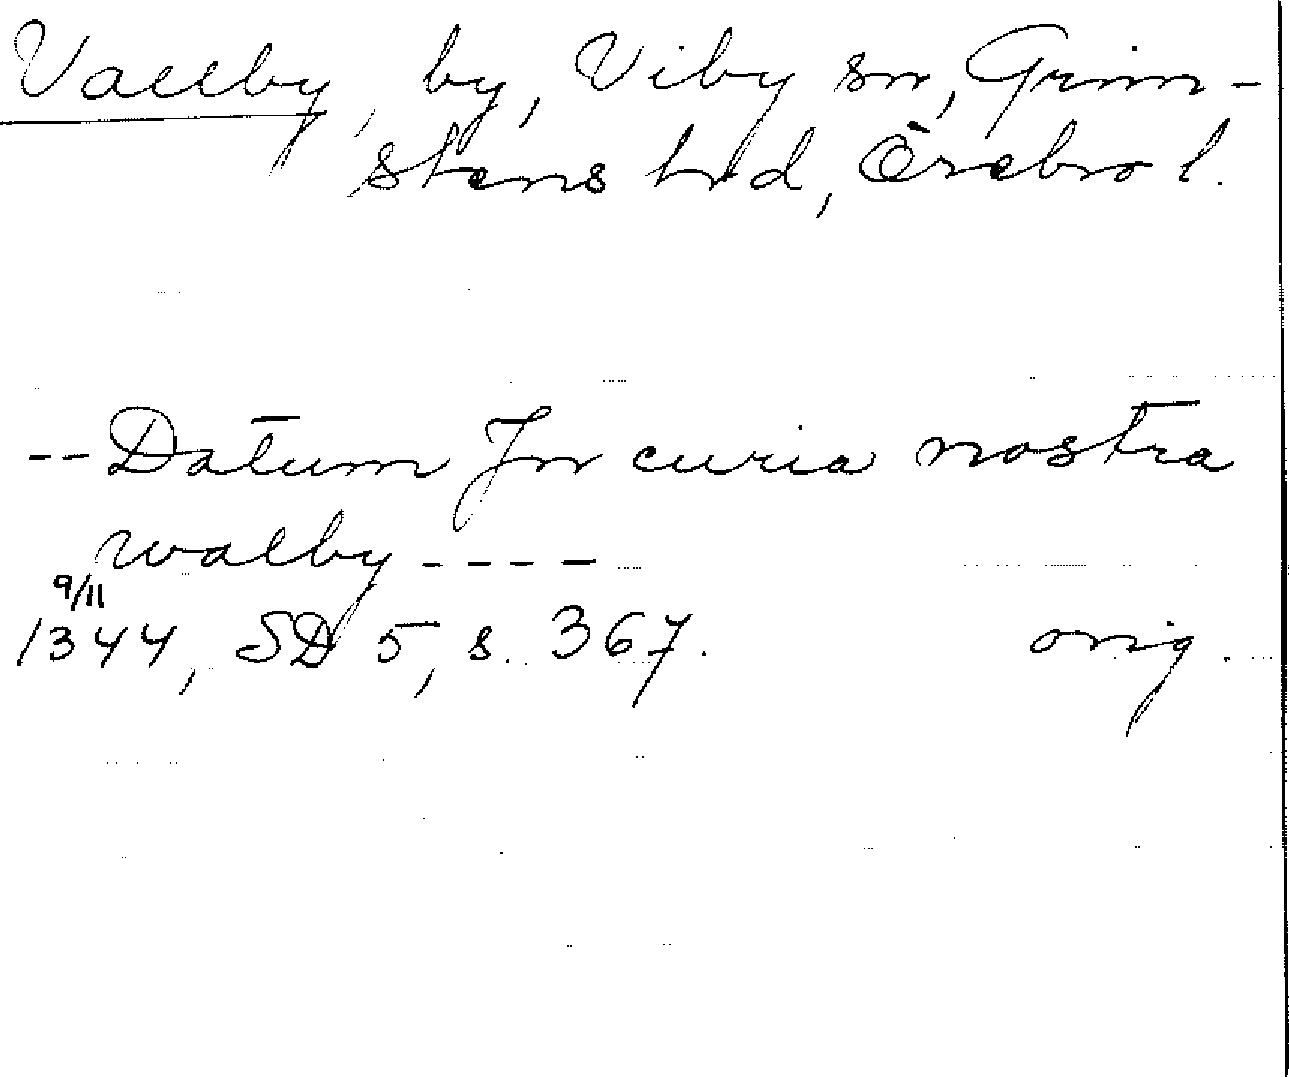 Vallby, by, Viby sn, Grim-
stens hd, Örebro l.
-- Datum Jn curia nostra
walby ----
9/11
1344, SD 5, s. 367. orig.